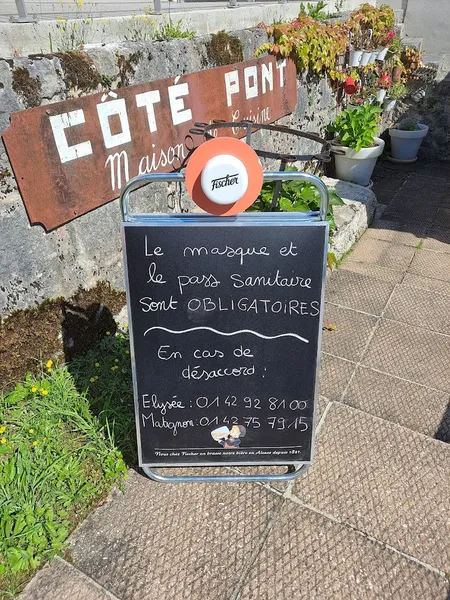 CÔTÉ PONT
Maison de Cuisine
Fischer
Le masque et
le pass Sanitaire
Sont OBLIGATOIRES
En cas de
désaccord :
Elysée : 01 42 92 81 00
Matignon : 01 42 75 79 15
Nous chez Fischer on brasse notre bière en Alsace depuis 1821.